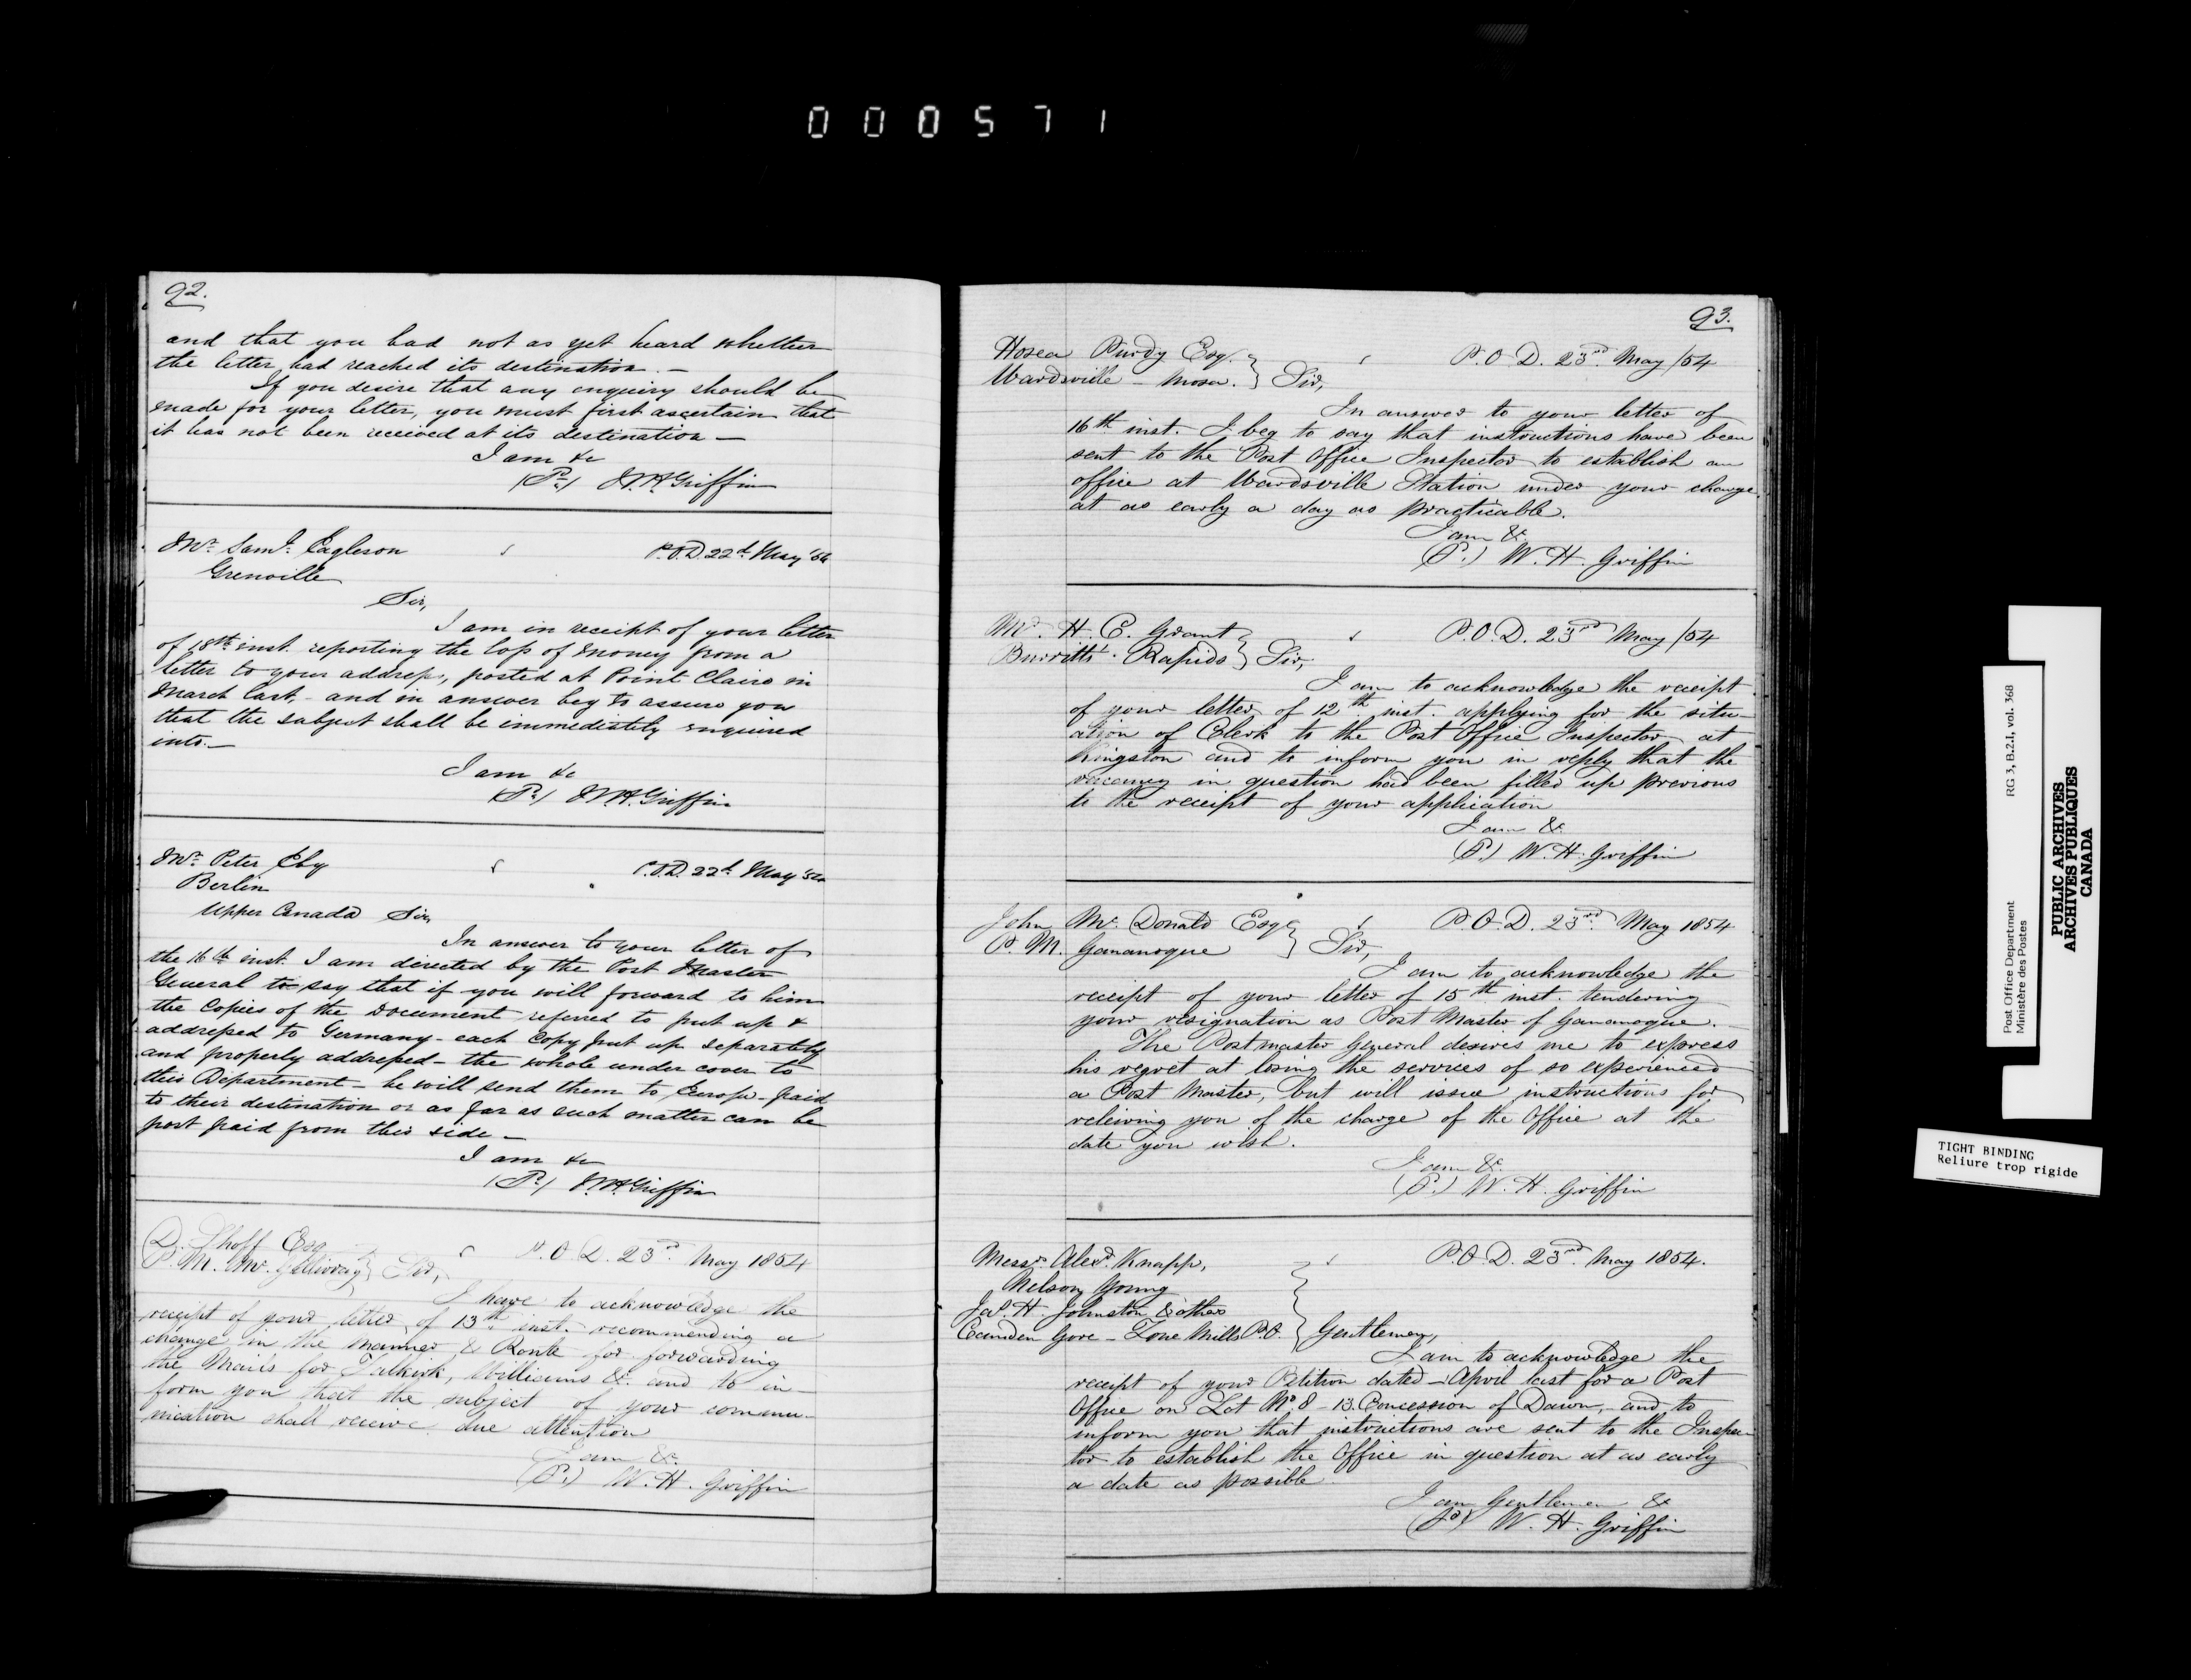 000571
92.
and that you had not as yet heard whether
the letter had reached its destination. —
If you desire that any enquiry should be
made for your letter, you must first ascertain that
it has not been received at its destination —
I am &c
(Pr) W. H. Griffin
Mr. Saml. Eagleson
P.O.D. 22d. May '54
Grenville
Sir,
I am in receipt of your letter
of 18th inst. reporting the loss of money from a
letter to your address, posted at Point Claire in
March last, and in answer beg to assure you
that the subject shall be immediately enquired
into. —
I am &c
(Pr) W. H. Griffin
Mr. Peter Eby
P.O.D. 22d. May '54
Berlin
Upper Canada Sir,
In answer to your letter of
the 16th inst. I am directed by the Post Master
General to say that if you will forward to him
the Copies of the Document referred to put up &
addressed to Germany - each Copy put up separately
and properly addressed - the whole under cover to
this Department - he will send them to Europe - paid
to their destination or as far as such matter can be
post paid from this side —
I am &c
(Pr) W. H. Griffin
D. Shoff Esq
P.O.D. 23rd. May 1854
P. M. Mc. Gillivray } Sir,
I have to acknowledge the
receipt of your letter of 13th inst. recommending a
change in the manner & Route for forwarding
the Mails for Falkirk, Williams &c. and to in-
form you that the subject of your commu-
nication shall receive due attention
I am &c.
(Pr.) W. H. Griffin
93.
Hosea Purdy Esq. }
P.O.D. 23rd. May /54
Wardsville - Mosa. } Sir,
In answer to your letter of
16th inst. I beg to say that instructions have been
sent to the Post Office Inspector to establish an
office at Wardsville Station under your charge
at as early a day as practicable.
I am &c.
(P.) W. H. Griffin
Mr. H. E. Grant }
P.O.D. 23rd May /54
Burritts' Rapids } Sir,
I am to acknowledge the receipt
of your letter of 12th inst. applying for the situ-
ation of Clerk to the Post Office Inspector at
Kingston and to inform you in reply that the
vacancy in question had been filled up previous
to the receipt of your application
I am &c.
(P.) W. H. Griffin
John Mc. Donald Esqr }
P.O.D. 23rd. May 1854
P. M. Gananoque } Sir,
I am to acknowledge the
receipt of your letter of 15th inst. tendering
your resignation as Post Master of Gananoque.
The Postmaster General desires me to express
his regret at losing the services of so experienced
a Post Master, but will issue instructions for
releiving you of the charge of the Office at the
date you wish.
I am &c.
(P.) W. H. Griffin
Messrs. Alexr. Knapp,
P.O.D. 23rd. May 1854.
Nelson Young
Jas. H. Johnston & others
Camden Gore - Zone Mills P.O. } Gentlemen,
I am to acknowledge the
receipt of your Petition dated - April last for a Post
Office on Lot No. 8 - 13. Concession of Dawn, and to
inform you that instructions are sent to the Inspec-
tor to establish the Office in question at as early
a date as possible
I am Gentlemen &c
(Pr) W. H. Griffin
Post Office Department
Ministère des Postes
RG 3, B.2.I, vol. 368
PUBLIC ARCHIVES
ARCHIVES PUBLIQUES
CANADA
TIGHT BINDING
Reliure trop rigide